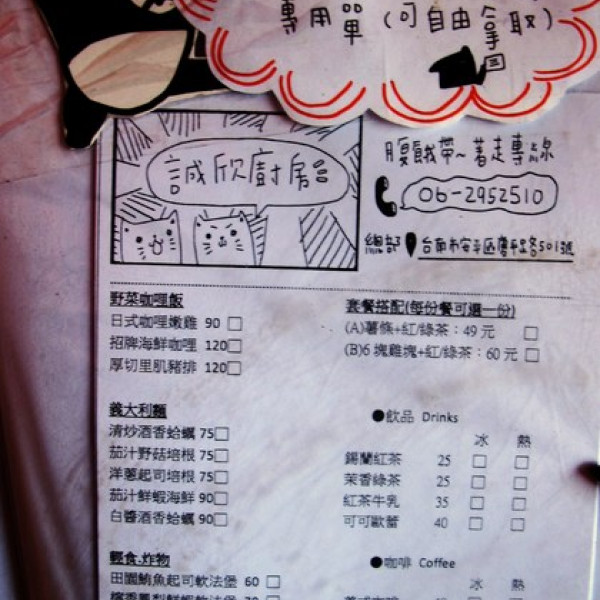 專用單(可自由拿取)
誠欣廚房
腹餓帶~著走專線
06-2952510
總部
野菜咖哩飯
日式咖哩嫩雞 90 □
招牌海鮮咖哩 120□
厚切里肌豬排 120□
套餐搭配(每份餐可選一份)
(A)薯條+紅/綠茶:49 元 □
(B)6 塊雞塊+紅/綠茶:60 元 □
義大利麵
清炒酒香蛤蠣 75□
茄汁野菇培根 75□
洋蔥起司培根 75□
茄汁鮮蝦海鮮 90□
白醬酒香蛤蠣 90□
●飲品 Drinks
冰 熱
錫蘭紅茶 25 □ □
茉香綠茶 25 □ □
紅茶牛乳 35 □ □
可可歐蕾 40 □ □
輕食.炸物
田園鮪魚起司軟法堡 60 □
●咖啡 Coffee
冰 熱